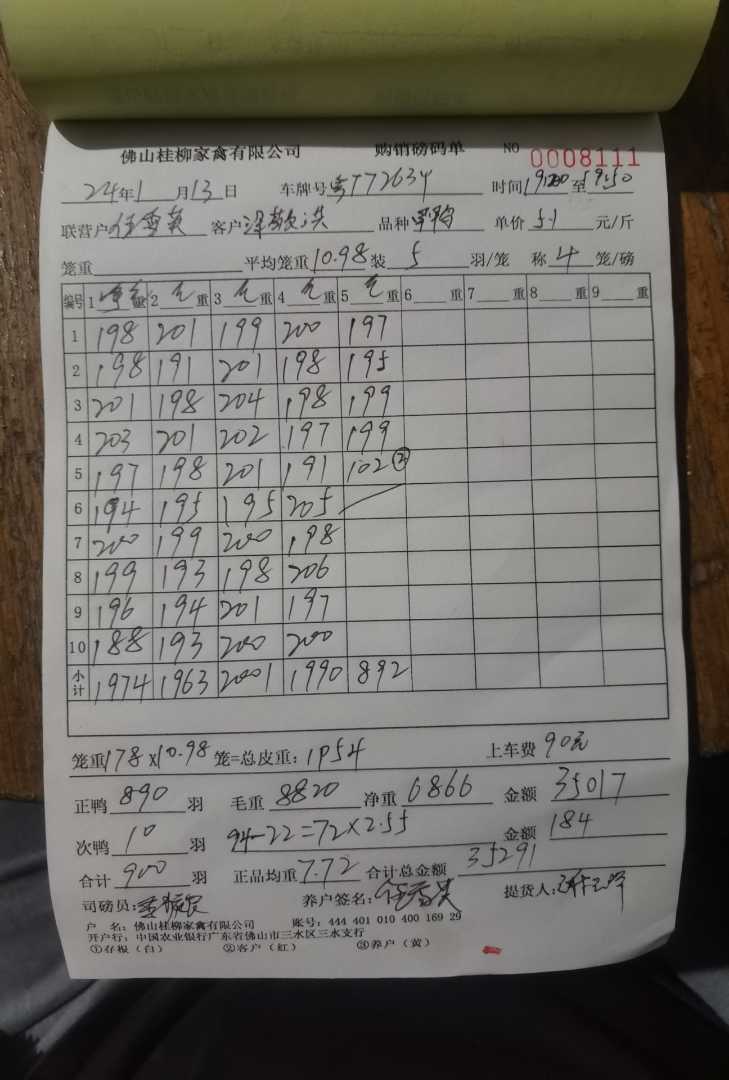 佛山桂柳家禽有限公司 购销磅码单 NO 0008111
24年1月13日 车牌号粤T72634 时间 至 19:50
联营户 客户 品种 单价5.1元/斤
笼重 平均笼重10.98装5羽/笼 称4笼/磅
编号 1 重 2 毛重 3 毛重 4 毛重 5 毛重 6 重 7 重 8 重 9 重
1 198 201 199 200 197
2 198 191 201 198 195
3 201 198 204 198 199
4 203 201 202 197 199
5 197 198 201 191 102②
6 194 195 195 205
7 200 199 200 198
8 199 193 198 206
9 196 194 201 197
10 188 193 200 200
小计 1974 1963 2001 1990 892
笼重178×10.98笼=总皮重:1954 上车费90元
正鸭890羽 毛重8820 净重6866 金额35017
次鸭10羽 94-22=72×2.55 金额184
合计900羽 正品均重7.72 合计总金额35291
司磅员: 养户签名: 提货人:
户 名:佛山桂柳家禽有限公司 账号:444 401 010 400 169 29
开户行:中国农业银行广东省佛山市三水区三水支行
①存根(白) ②客户(红) ③养户(黄)